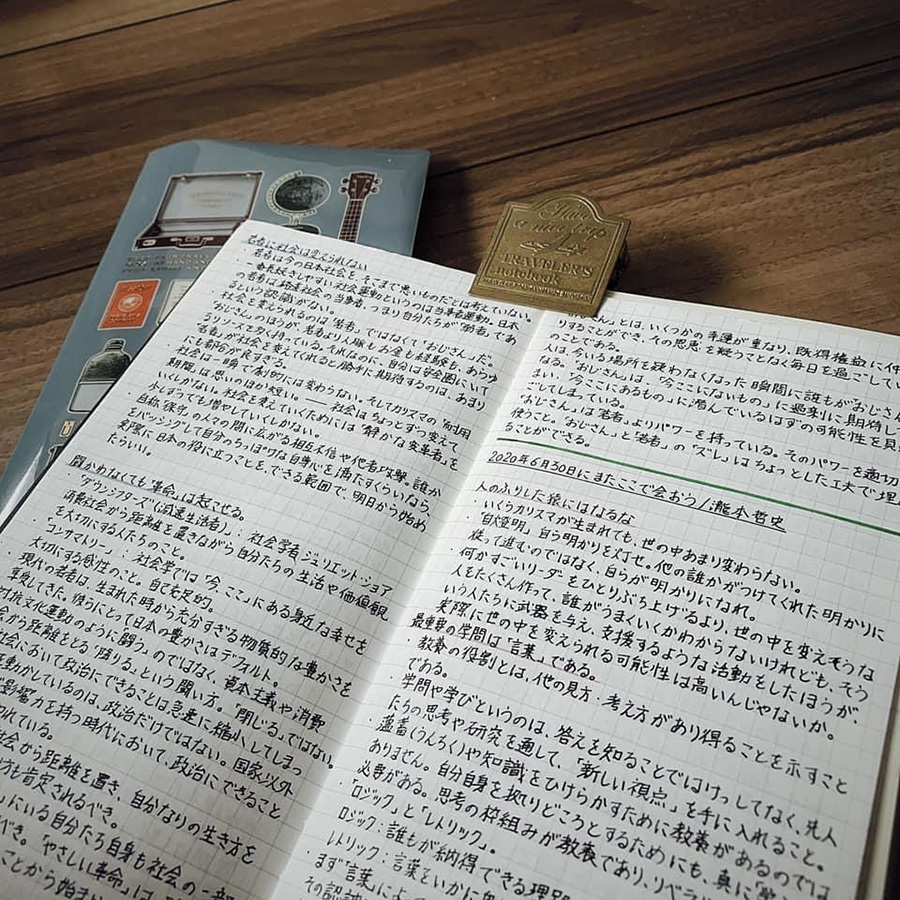 Have
a nice logs
TRAVELER'S
notebook
若者に社会は変えられない
・若者は今の日本社会を、そこまで悪いものだとは考えていない。
・一番長続きしやすい社会運動というのは当事者運動。日本
の若者は格差社会の当事者、つまり自分たちが「弱者」であ
るという認識がない。
・社会を変えられるのは「若者」ではなくて「おじさん」だ。
「おじさん」のほうが、若者より人脈もお金も経験も、あらゆ
るリソースをたくさん持っている。それなのに、自分は安全圏にいて
「若者」が社会を変えてくれると勝手に期待するのは、あまり
にも都合が良すぎる。
・社会は一瞬で劇的には変わらない。そしてカリスマの「耐用
期間」は思いのほか短い。――社会はちょっとずつ変えて
いくしかない。社会を変えていくためには「静かな変革者」を
少しずつでも増やしていくしかない。
・自称「保守」の人々の間に広がる相互不信や他者攻撃。誰か
をバッシングして自分のちっぽけな自尊心を満たすくらいなら、
実際に日本の役に立つことを、できる範囲で、明日から始め
たらいい。
闘かわなくても「革命」は起こせる。
・「ダウンシフターズ(減速生活者)」:社会学者ジュリエット・ショア
消費社会から距離を置きながら自分たちの生活や価値観
を大切にする人たちのこと。
・「コンサマトリー」:社会学では「今、ここ」にある身近な幸せを
大切にする感性のこと。自己充足的。
・現代の若者は、生まれた時から充分すぎる物質的な豊かさを
享受してきた。彼らにとって日本の豊かさはデフォルト。
対抗文化運動のように「闘う」のではなく、資本主義や消費
会から距離をとる「降りる」という闘い方。「閉じる」ではない。
社会において政治にできることは急速に縮小してしまっ
を動かしているのは、政治だけではない。国家以外
影響力を持つ時代において、政治にできること
われている。
社会から距離を置き、自分なりの生き方を
方も肯定されるべき。
」にいる自分たち自身も社会の一部
べき。「やさしい革命」は、
ことから始ま
おじさん」とは、いくつかの幸運が重なり、既得権益に仲
りすることができ、その恩恵を疑うことなく毎日を過ごしてい
のことである。
人は、今いる場所を疑わなくなった瞬間に誰もが「おじさん
なる。「おじさん」は、「今ここにないもの」に過剰に期待して
まい、「今ここにあるもの」に潜んでいるはずの可能性を見
ごしてしまっている。
「おじさん」は「若者」よりパワーを持っている。そのパワーを適切
使うこと。「おじさん」と「若者」の「ズレ」はちょっとした工夫で埋
ることができる。
2020年6月30日にまたここで会おう/瀧本哲史
人のふりした猿にはなるな
・いくらカリスマが生まれても、世の中あまり変わらない。
・「自燈明」。自ら明かりを灯せ。他の誰かがつけてくれた明かりに
従って進むのではなく、自らが明かりになれ。
・何かすごいリーダをひとりぶち上げるより、世の中を変えそうな
人をたくさん作って、誰がうまくいくかわからないけれども、そう
いう人たちに武器を与え、支援するような活動をしたほうが、
実際に世の中を変えられる可能性は高いんじゃないか。
最重要の学問は「言葉」である。
・教養の役割とは、他の見方・考え方があり得ることを示すこと
である。
・学問や学びというのは、答えを知ることではけっしてなく、先人
たちの思考や研究を通して、「新しい視点」を手に入れること。
・薀蓄(うんちく)や知識をひけらかすために教養があるのでは
ありません。自分自身を拠りどころとするためにも、真に「
必要がある。思考の枠組みが教養であり、リベラ
・「ロジック」と「レトリック」。
ロジック:誰もが納得できる理
レトリック:言葉をいかに
・まず「言葉」によ
その認